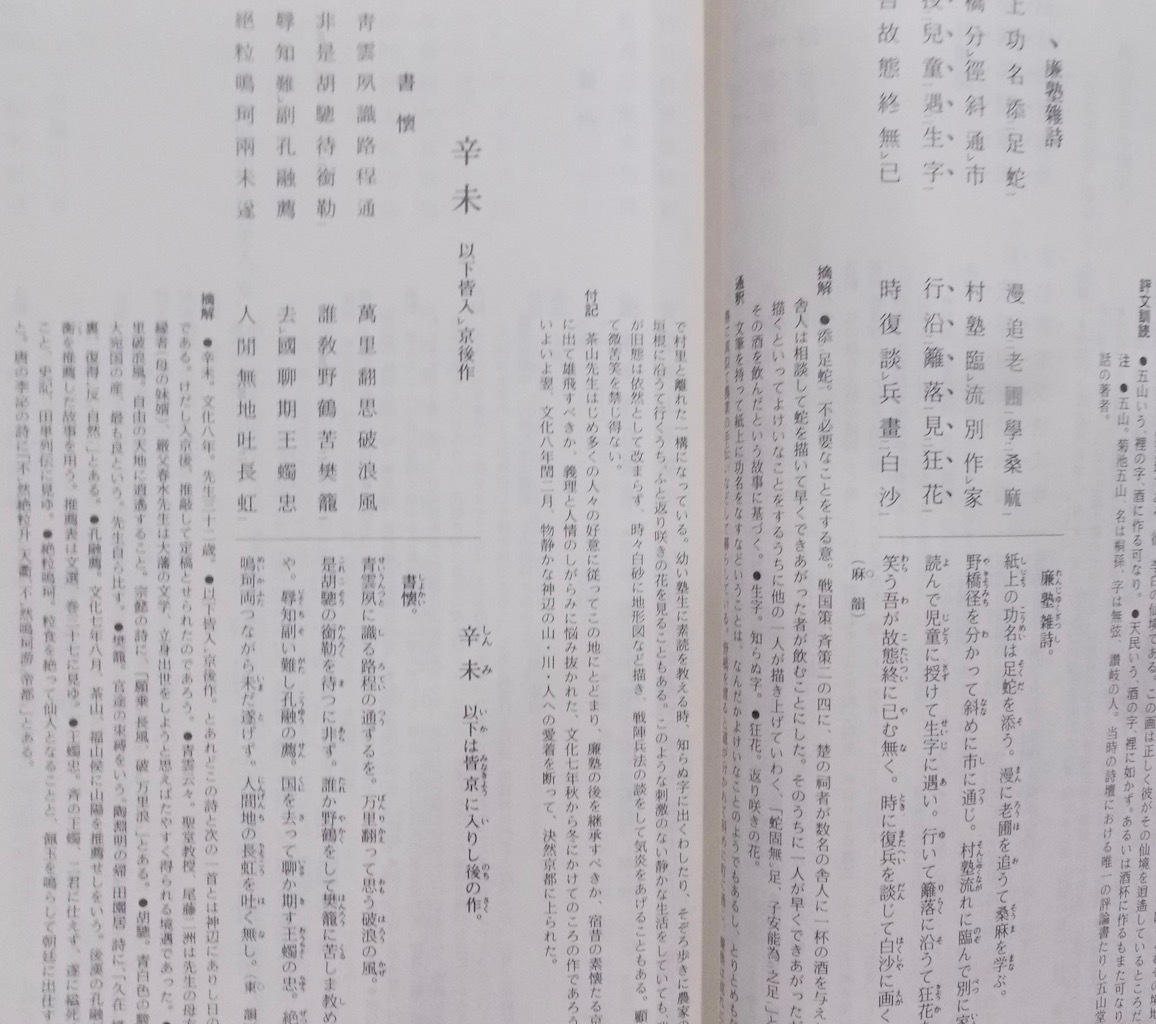 評文訓読
●五山いう、裡の字、酒に作る可なり。●天民いう、酒の字、裡に如かず。あるいは酒杯に作るもまた可なり
注 ●五山。菊池五山、名は桐孫、字は無弦、讃岐の人。当時の詩壇における唯一の評論書たりし五山堂
話の著者。
廉塾雑詩
上功名添足蛇 漫追老圃學桑麻
橋分徑斜通市 村塾臨流別作家
兒童遇生字 行沿籬落見狂花
吾故態終無已 時復談兵畫白沙
廉塾雑詩。
紙上の功名は足蛇を添う。漫に老圃を追うて桑麻を学ぶ。
野橋径を分かって斜めに市に通じ。村塾流れに臨んで別に家
読んで児童に授けて生字に遇い。行いて籬落に沿うて狂花
笑う吾が故態終に已む無く。時に復兵を談じて白沙に画く
(麻韻)
摘解 ●添足蛇。不必要なことをする意。戦国策、斉策二の四に、楚の祠者が数名の舎人に一杯の酒を与え
舎人は相談して蛇を描いて早くできあがった者が飲むことにした。そのうちに一人が早くできあがっただ
描くといってよけいなことをするうちに他の一人が描き上げていわく、「蛇固無足、子安能為之足」と
その酒を飲んだという故事に基づく。●生字。知らぬ字。●狂花。返り咲きの花。
通釈 文筆を持って紙上に功名をなすなどということは、なんだかよけいなことのようでもあるし、とりとめも
で村里と離れた一構になっている。幼い塾生に素読を教える時、知らぬ字に出くわしたり、そぞろ歩きに農家の
垣根に沿うて行くうち、ふと返り咲きの花を見ることもある。このような刺激のない静かな生活をしていても、
が旧態は依然として改まらず、時々白砂に地形図など描き、戦陣兵法の談をして気炎をあげることもある。顧
て微苦笑を禁じ得ない。
付記 茶山先生はじめ多くの人々の好意に従ってこの地にとどまり、廉塾の後を継承すべきか、宿昔の素懐たる京
に出て雄飛すべきか、義理と人情のしがらみに悩み抜かれた、文化七年秋から冬にかけてのころの作であろう
いよいよ翌、文化八年閏二月、物静かな神辺の山・川・人への愛着を断って、決然京都に上られた。
辛未 以下皆入京後作
辛未 以下は皆京に入りし後の作。
書懷
青雲夙識路程通 萬里翻思破浪風
非是胡驄待銜勒 誰教野鶴苦樊籠
辱知難副孔融薦 去國聊期王蠋忠
絶粒鳴珂兩未遂 人閒無地吐長虹
書懐。
青雲夙に識る路程の通ずるを。万里翻って思う破浪の風。
是胡驄の銜勒を待つに非ず。誰か野鶴をして樊籠に苦しま教め
や。辱知副い難し孔融の薦。国を去って聊か期す王蠋の忠。絶
鳴珂両つながら未だ遂げず。人間地の長虹を吐く無し。(東 韻
摘解 ●辛未。文化八年。先生三十二歳。●以下皆入京後作。とあれどこの詩と次の一首とは神辺にありし日の
である。けだし入京後、推敲して定稿とせられたのであろう。●青雲云々。聖堂教授、尾藤二洲は先生の母方
縁者(母の妹婿)、厳父春水先生は大藩の文学、立身出世をしようと思えばたやすく得られる境遇であった。●
里破浪風。自由の天地に逍遙すること。宗愨の詩に、「願乗長風、破万里浪」とある。●胡驄。青白色の駿
大宛国の産、最も良という。先生自ら比す。●樊籠。官途の束縛をいう。陶淵明の帰田園居詩に、「久在樊
裏、復得反自然」とある。●孔融薦。文化七年八月、茶山、福山候に山陽を推薦せしをいう。後漢の孔融
衡を推薦した故事を用う。推薦表は文選、巻三十七に見ゆ。●王蠋忠。斉の王蠋、二君に仕えず、遂に縊死
こと、史記、田単列伝に見ゆ。●絶粒鳴珂。粒食を絶って仙人となることと、佩玉を鳴らして朝廷に出仕す
と。唐の李泌の詩に「不然絶粒升天衢、不然鳴珂游帝都」とある。